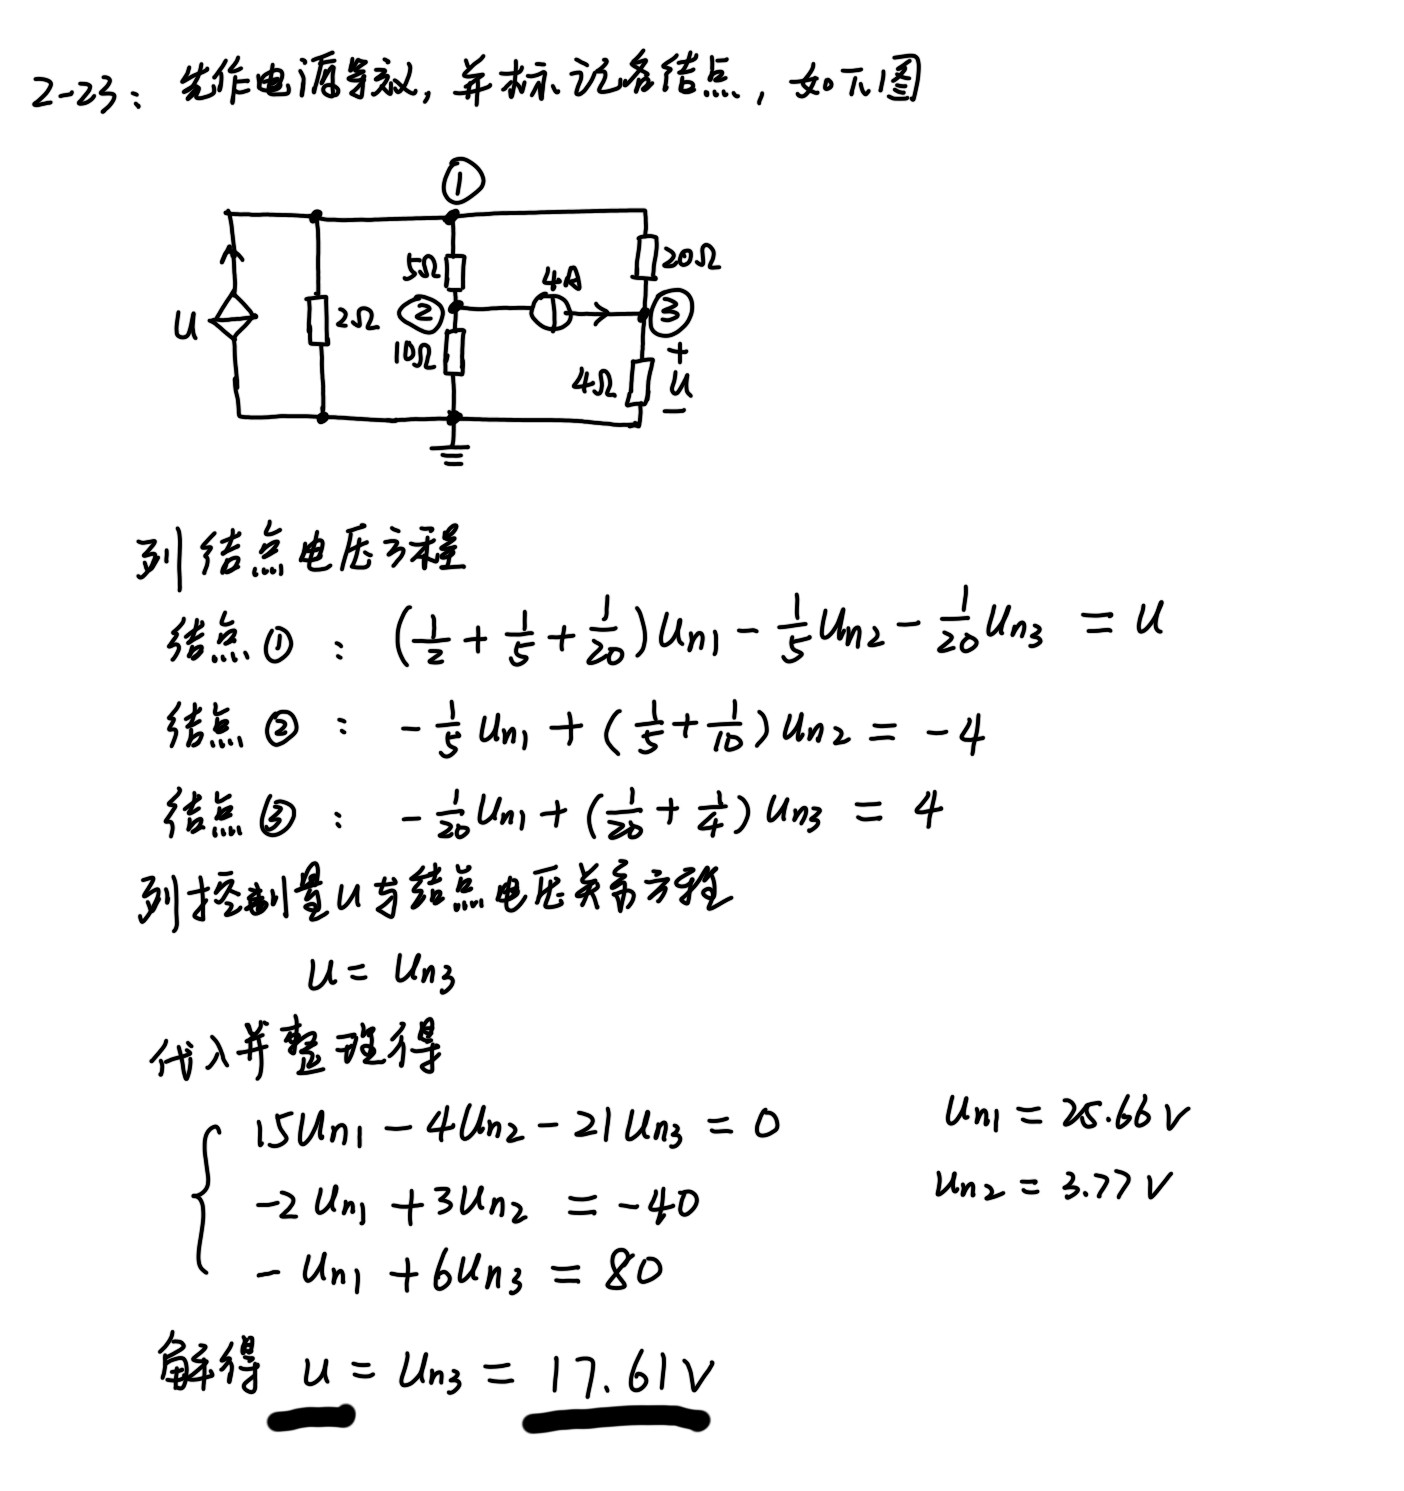 2-23: 先作电源等效, 并标记各结点, 如下图
①
5Ω
4A
20Ω
u
2Ω
②
③
10Ω
4Ω
+
u
−
列结点电压方程
结点①: (1/2 + 1/5 + 1/20)Un1 − 1/5 Un2 − 1/20 Un3 = U
结点②: −1/5 Un1 + (1/5 + 1/10) Un2 = −4
结点③: −1/20 Un1 + (1/20 + 1/4) Un3 = 4
列控制量U与结点电压关系方程
U = Un3
代入并整理得
15Un1 − 4Un2 − 21Un3 = 0
−2Un1 + 3Un2 = −40
−Un1 + 6Un3 = 80
Un1 = 25.66 V
Un2 = 3.77 V
解得 U = Un3 = 17.61V